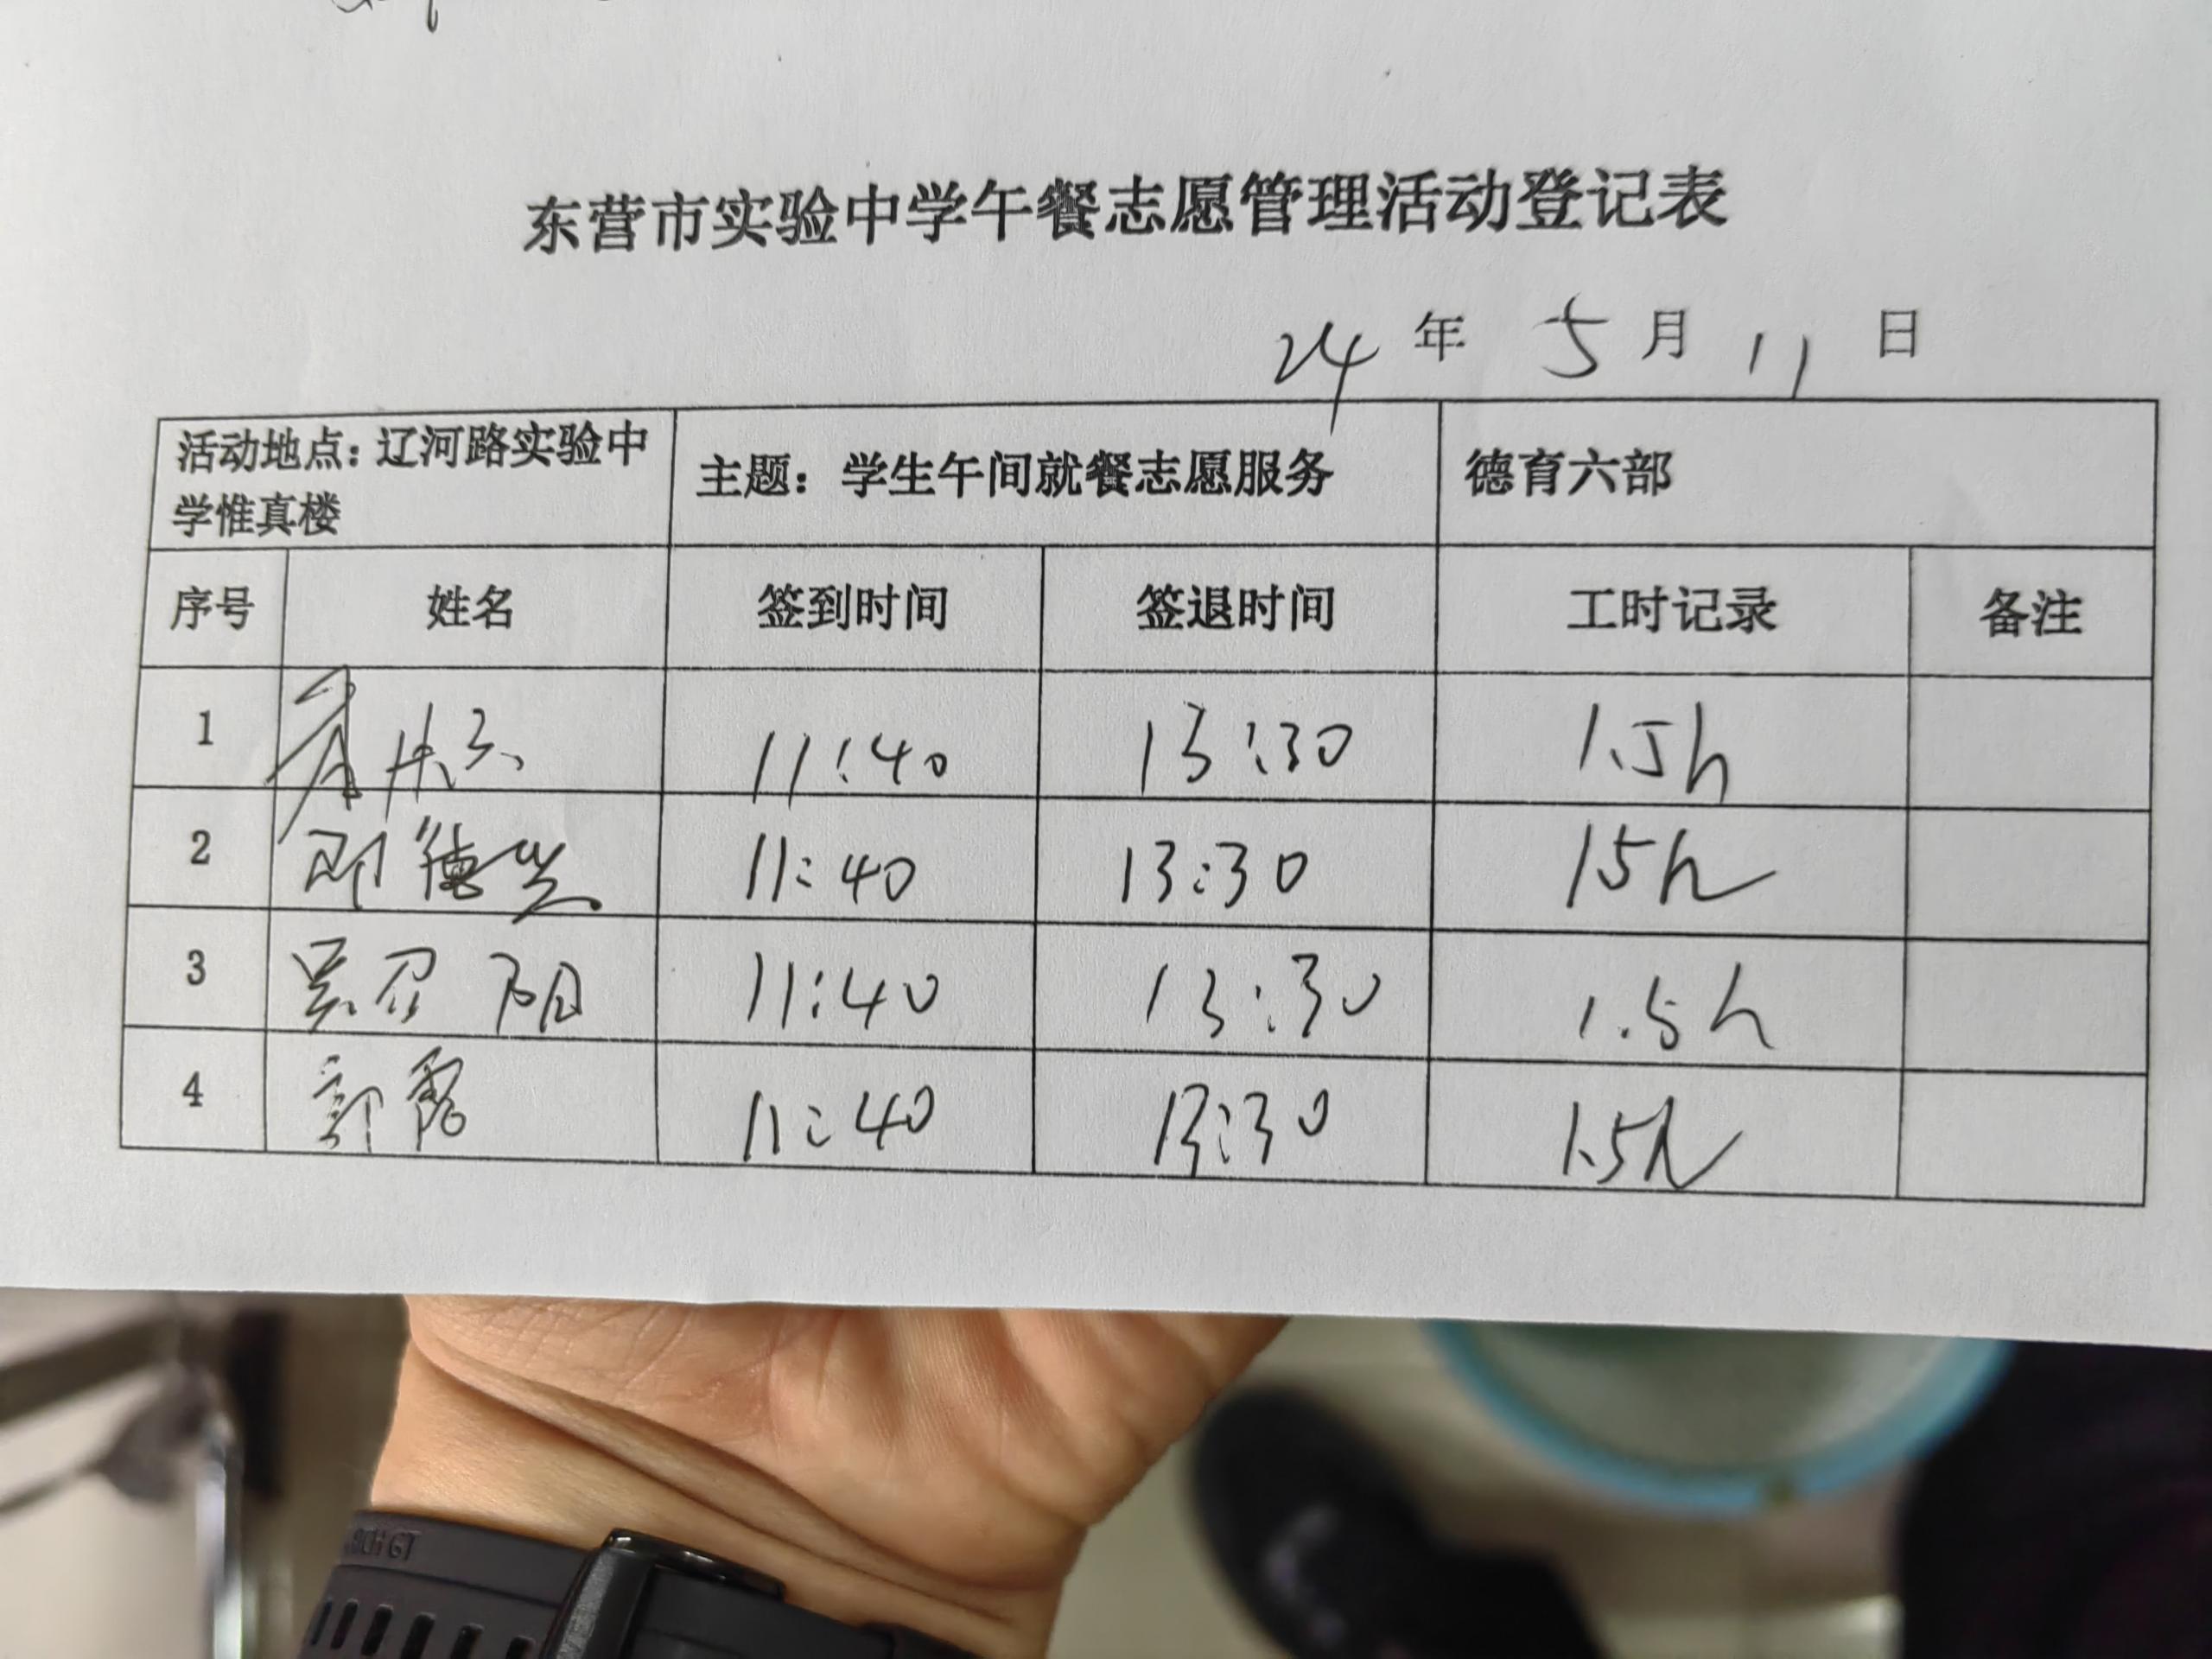 东营市实验中学午餐志愿管理活动登记表
24 年 5 月 11 日
活动地点：辽河路实验中学惟真楼 主题：学生午间就餐志愿服务 德育六部
序号 姓名 签到时间 签退时间 工时记录 备注
1 11:40 13:30 1.5h
2 11:40 13:30 15h
3 吴召阳 11:40 13:30 1.5h
4 郭露 11:40 13:30 1.5h